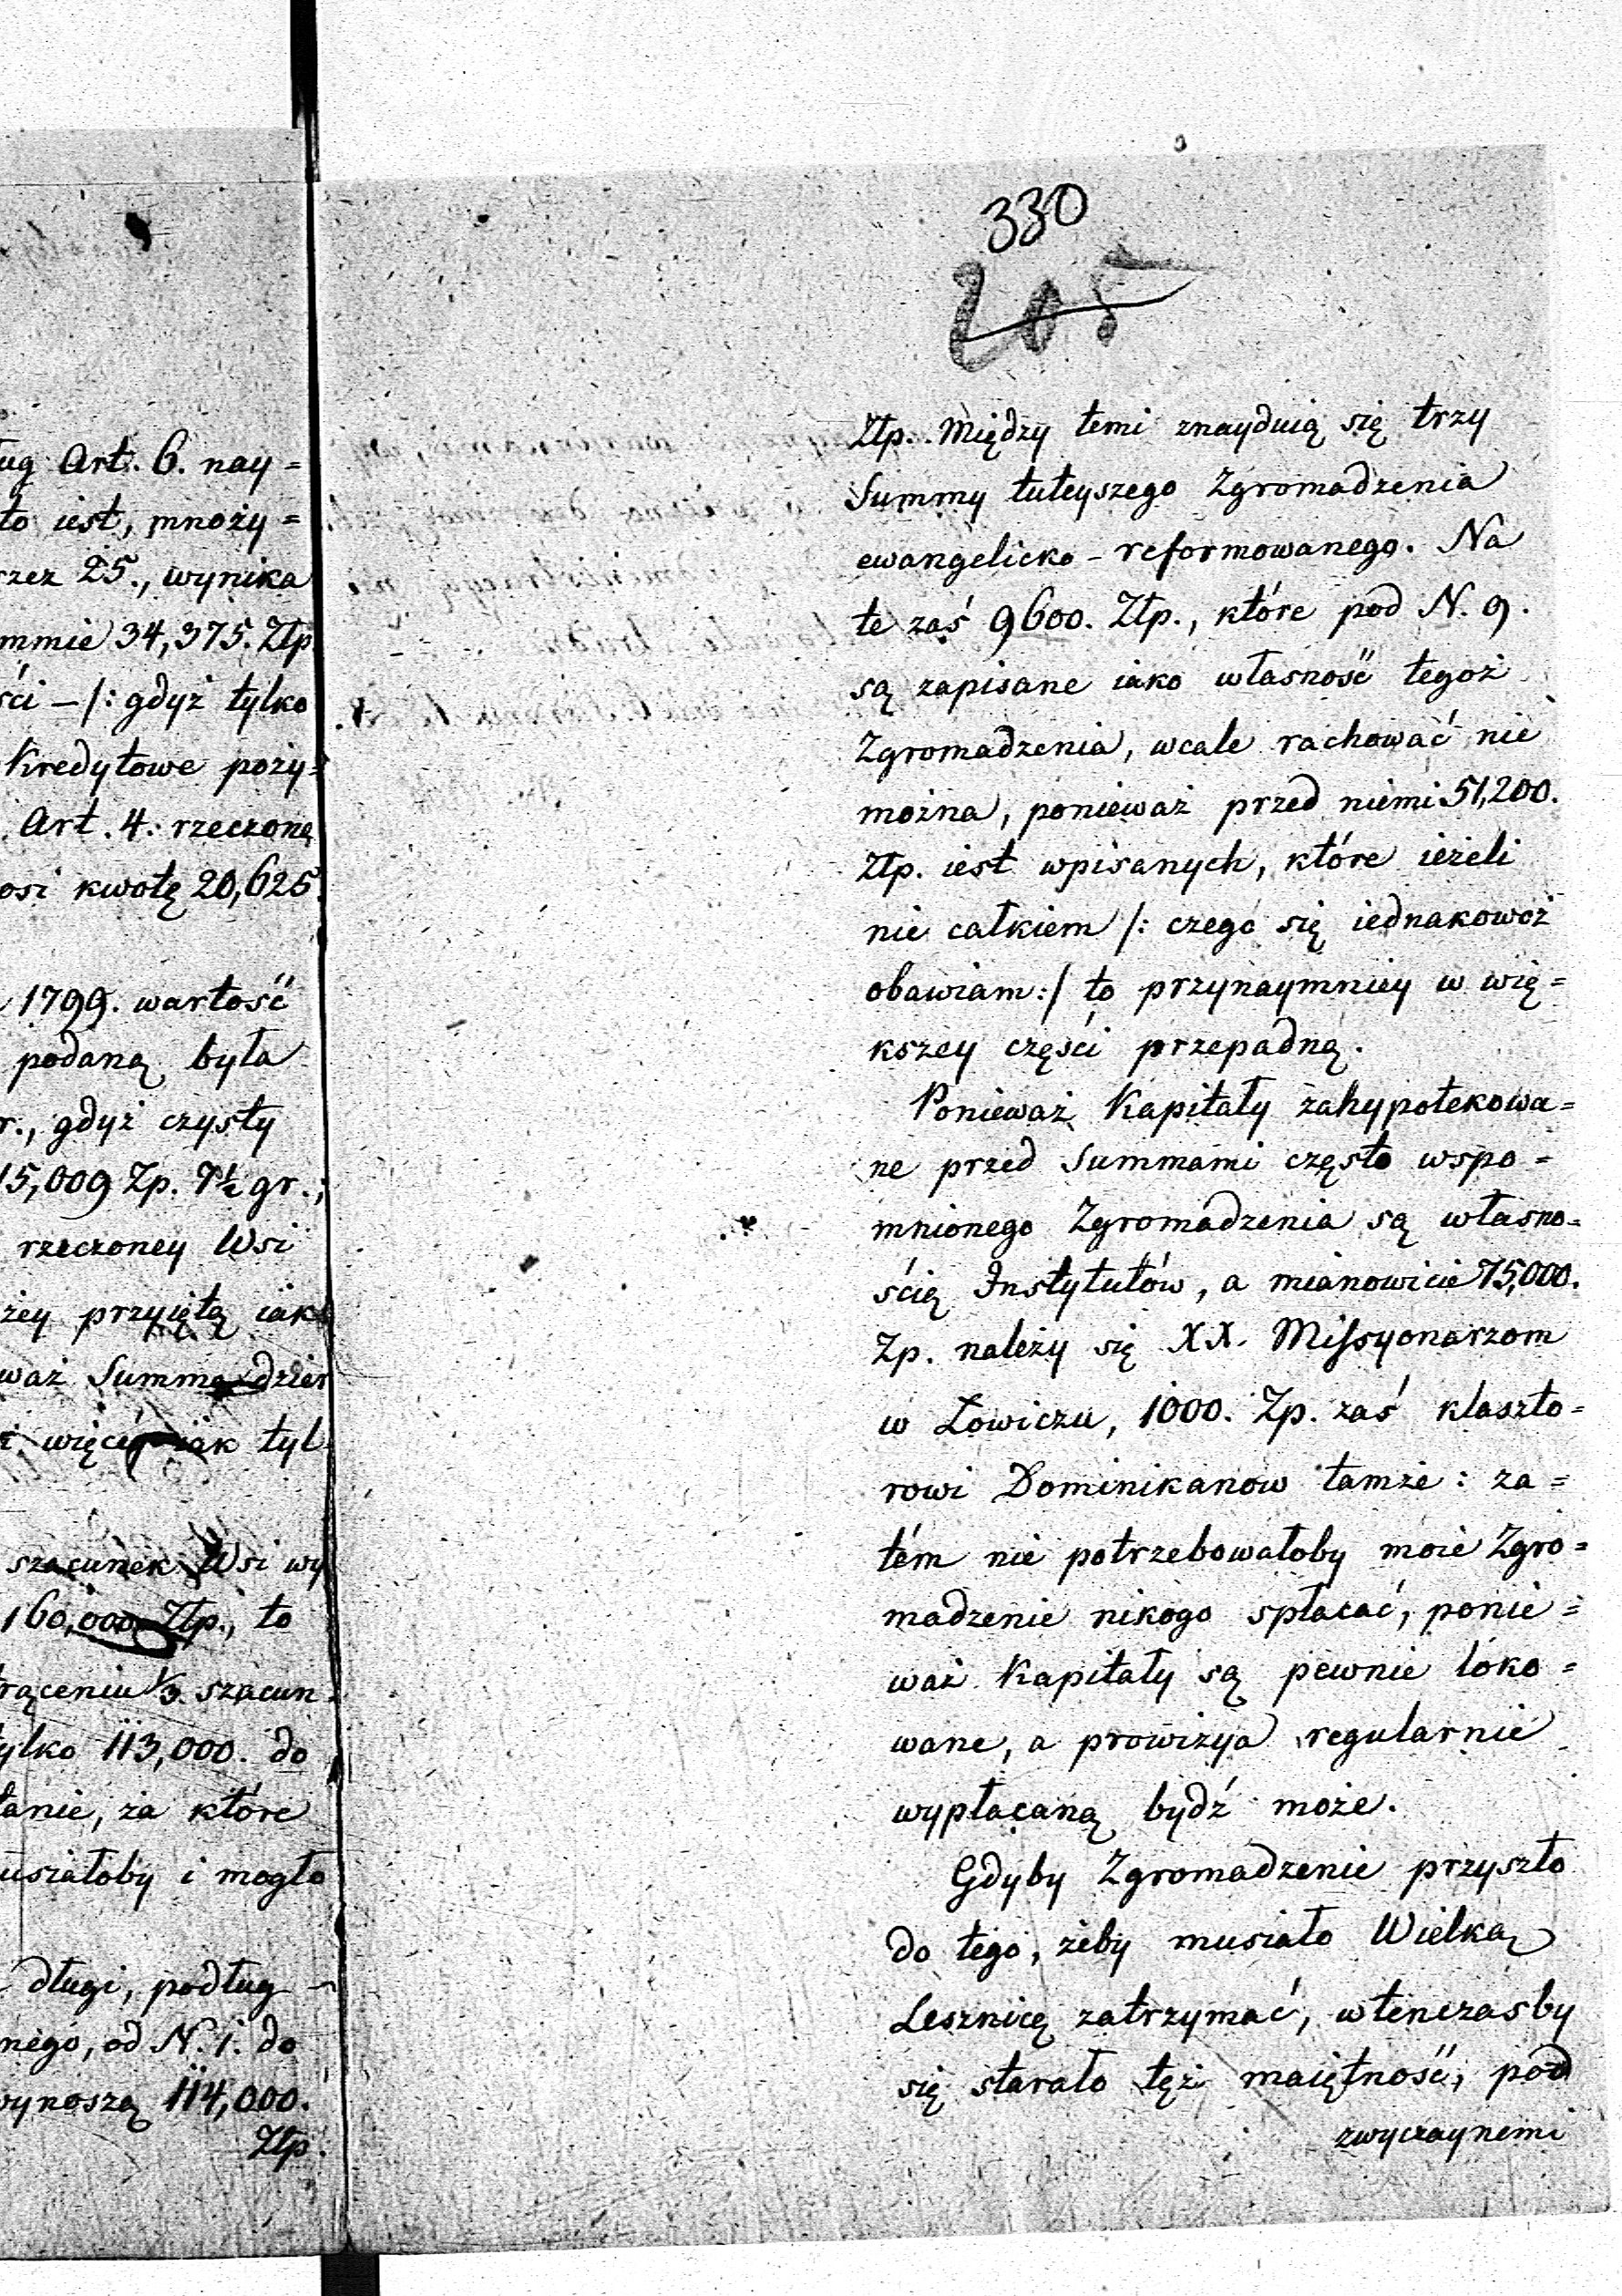 ług Art. 6. nay=
to iest, mnoży=
rzez 25., wynika
ummie 34,375. Złp
ści — /: gdyż tylko
Kredytowe poży=
Art. 4. rzeczoną
osi kwotę 20,625.
1799. wartość
podaną była
r., gdyż czysty
15,009 Zp. 7½ gr.,
rzeczoney Wsi
żey przyiętą iako
waż Summa dzier
więcéy iak tyl
szacunek Wsi wy
160,000 Złp., to
trąceniu ⅓ szacun
tylko 113,000. do
tanie, za które
usiałoby i mogło
długi, podług
nego, od N. 1. do
wynoszą 114,000.
Złp.
330
205
Złp. Między temi znayduią się trzy
Summy tuteyszego Zgromadzenia
ewangelicko-reformowanego. Na
te zaś 9600. Złp., które pod N. 9.
są zapisane iako własność tegoż
Zgromadzenia, wcale rachować nie
można, ponieważ przed niemi 51,200.
Złp. iest wpisanych, które ieżeli
nie całkiem /: czego się iednakowoż
obawiam :/ to przynaymniey w wię=
kszey części przepadną.
Ponieważ Kapitały zahypotekowa=
ne przed Summami często wspo=
mnionego Zgromadzenia są własno=
ścią Instytutów, a mianowicie 75,000.
Zp. należy się XX. Missyonarzom
w Łowiczu, 1000. Zp. zaś klaszto=
rowi Dominikanow tamże: za=
tém nie potrzebowałoby moie Zgro=
madzenie nikogo spłacać, ponie=
waż Kapitały są pewnie loko=
wane, a prowizya regularnie
wypłacaną bydź może.
Gdyby Zgromadzenie przyszło
do tego, żeby musiało Wielką
Lesznicę zatrzymać, wtenczasby
się starało tęż maiętność, pod
zwyczaynemi